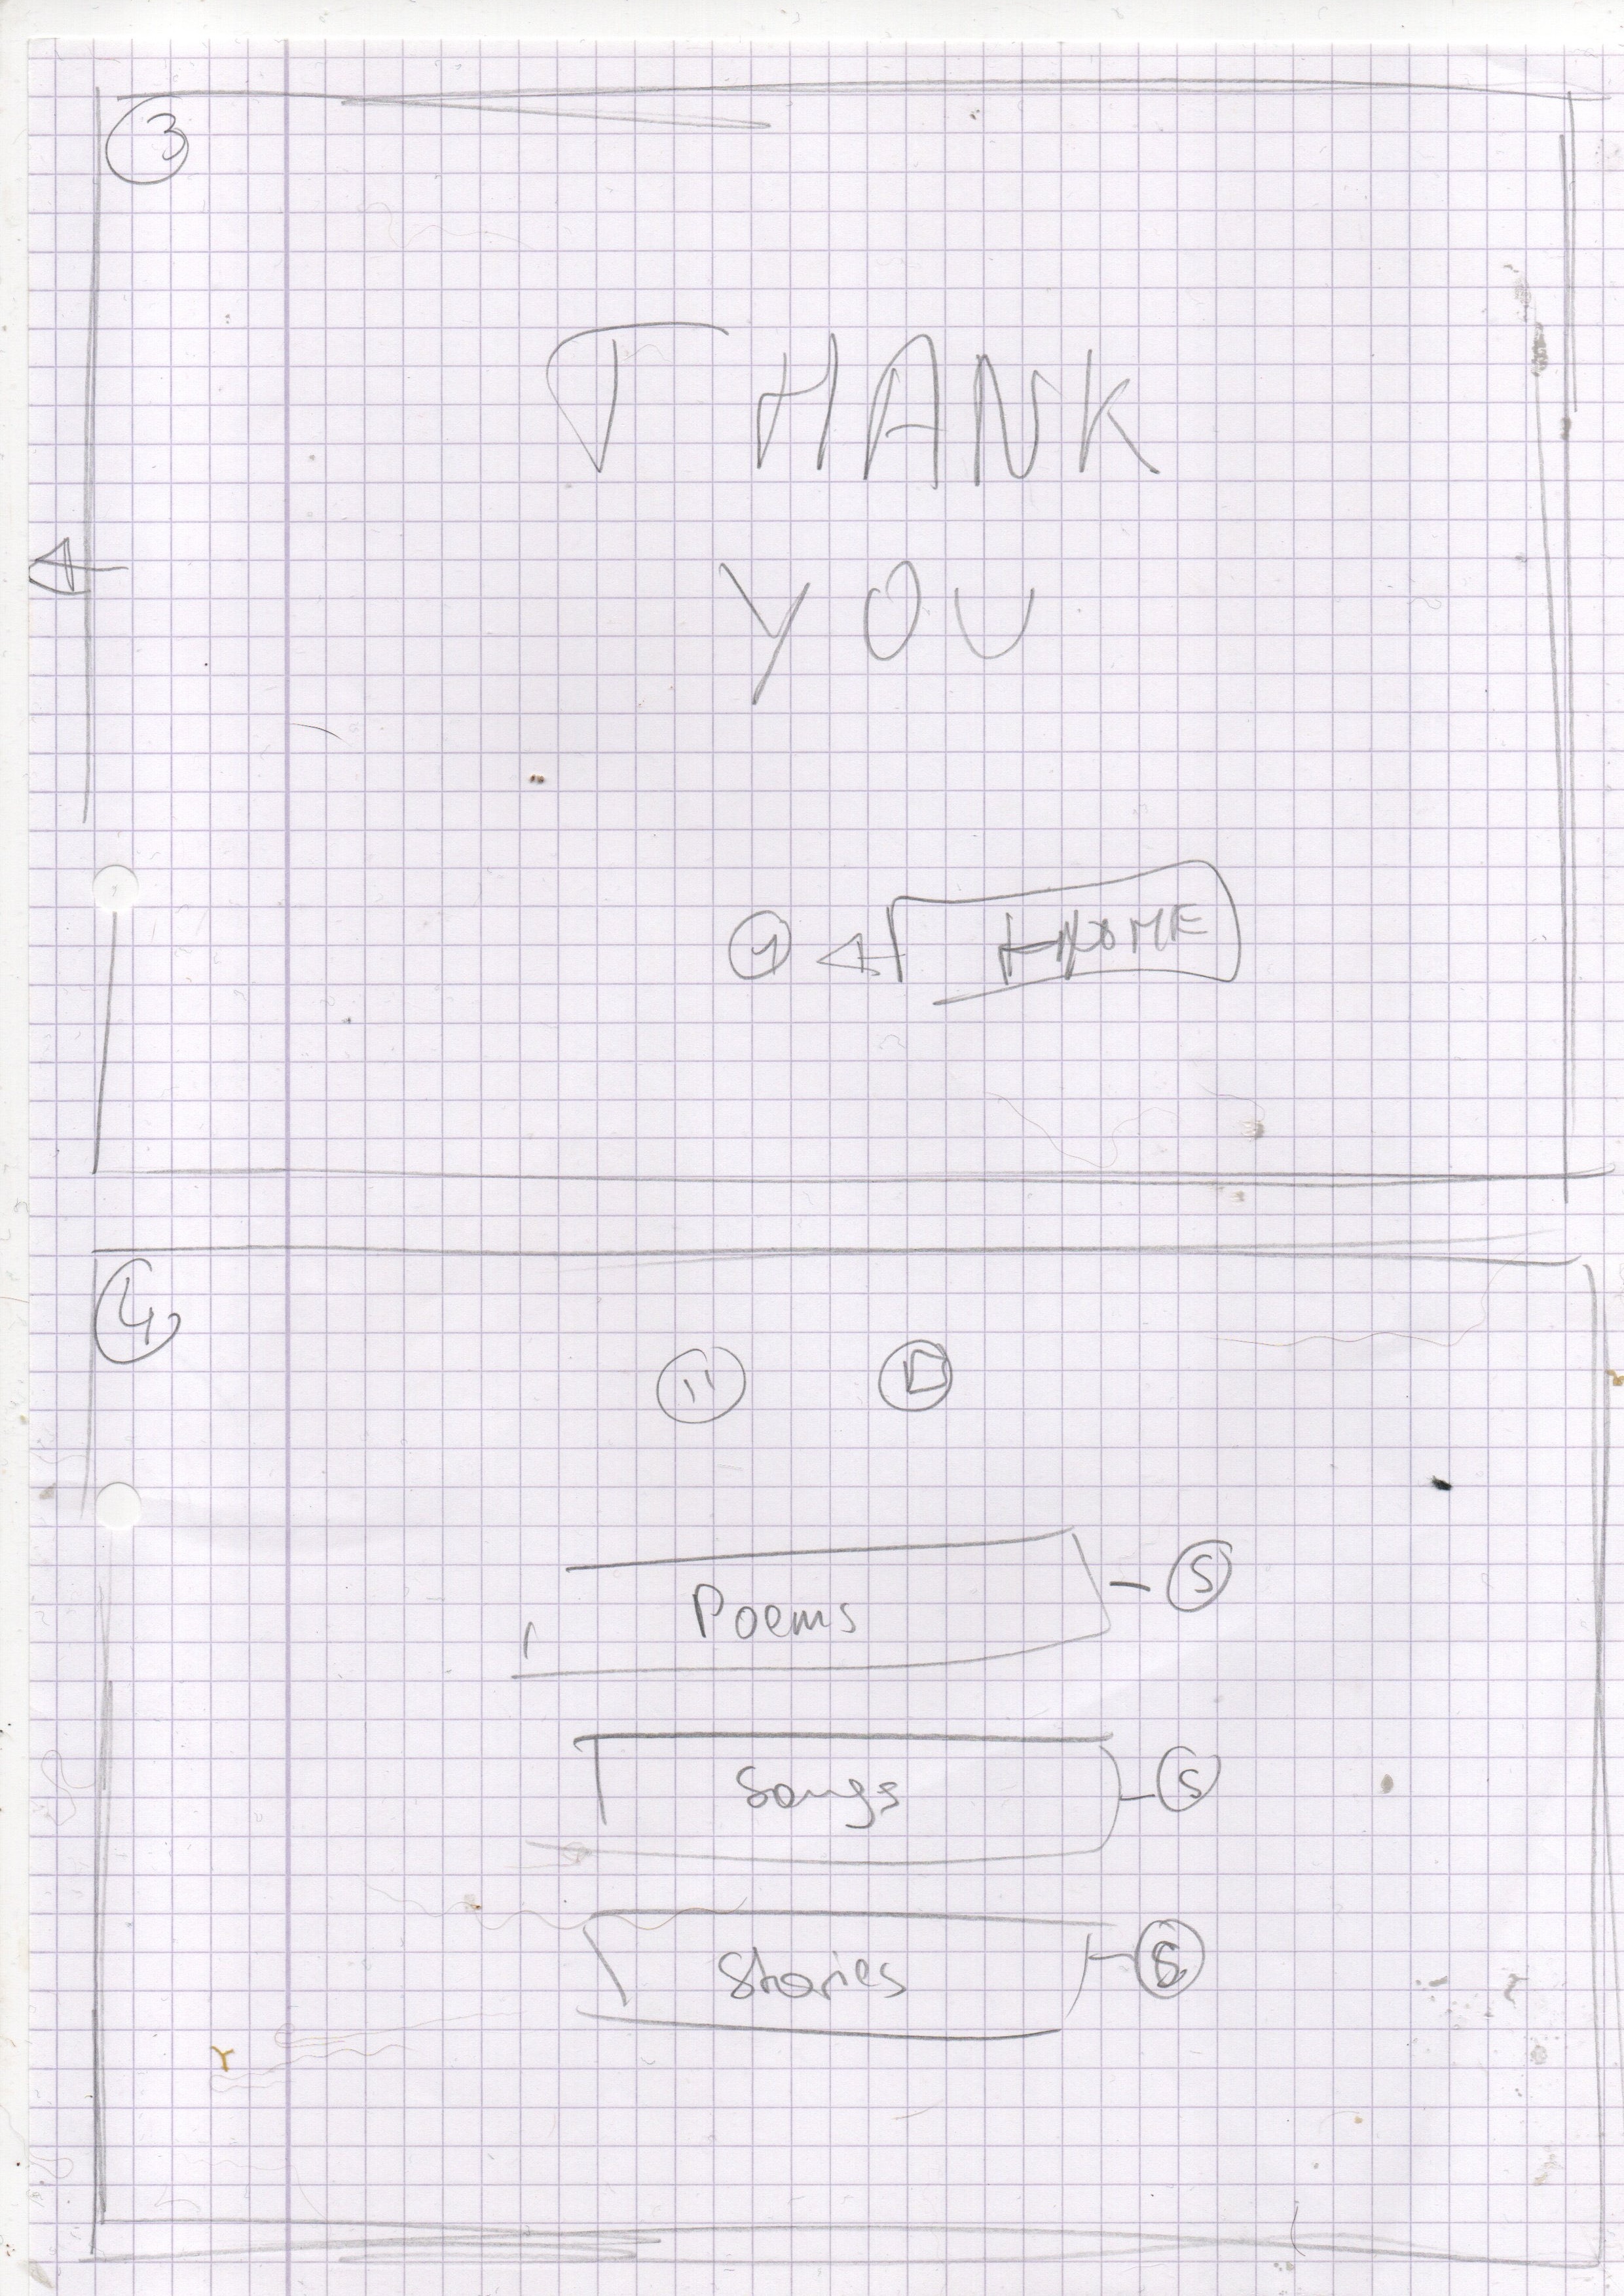 3
THANK
YOU
1 HOME
4
Poems S
Songs S
Stories